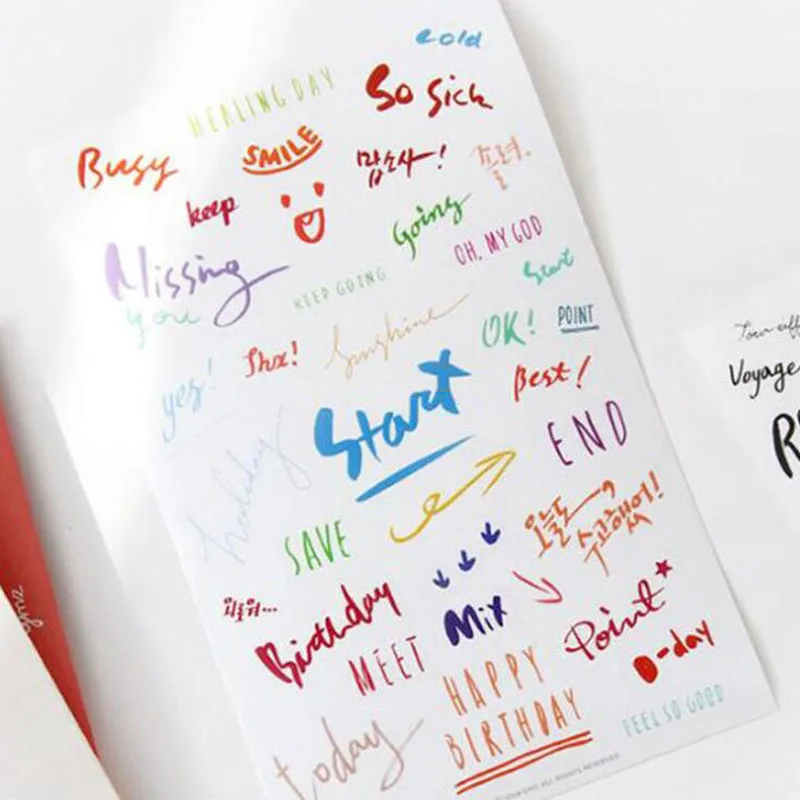 cold
HEALING DAY
So Sick
Busy
SMILE
맙소사!
졸려.
keep
Going
OH, MY GOD
Missing
you
KEEP GOING
Start
yes!
Thx!
Sunshine
OK!
POINT
Start
Best!
holiday
END
SAVE
오늘도
수고했어!
외로워...
Birthday
Mix
Point
MEET
D-day
HAPPY
BIRTHDAY
FEEL SO GOOD
today
ALL RIGHTS RESERVED.
Voyage